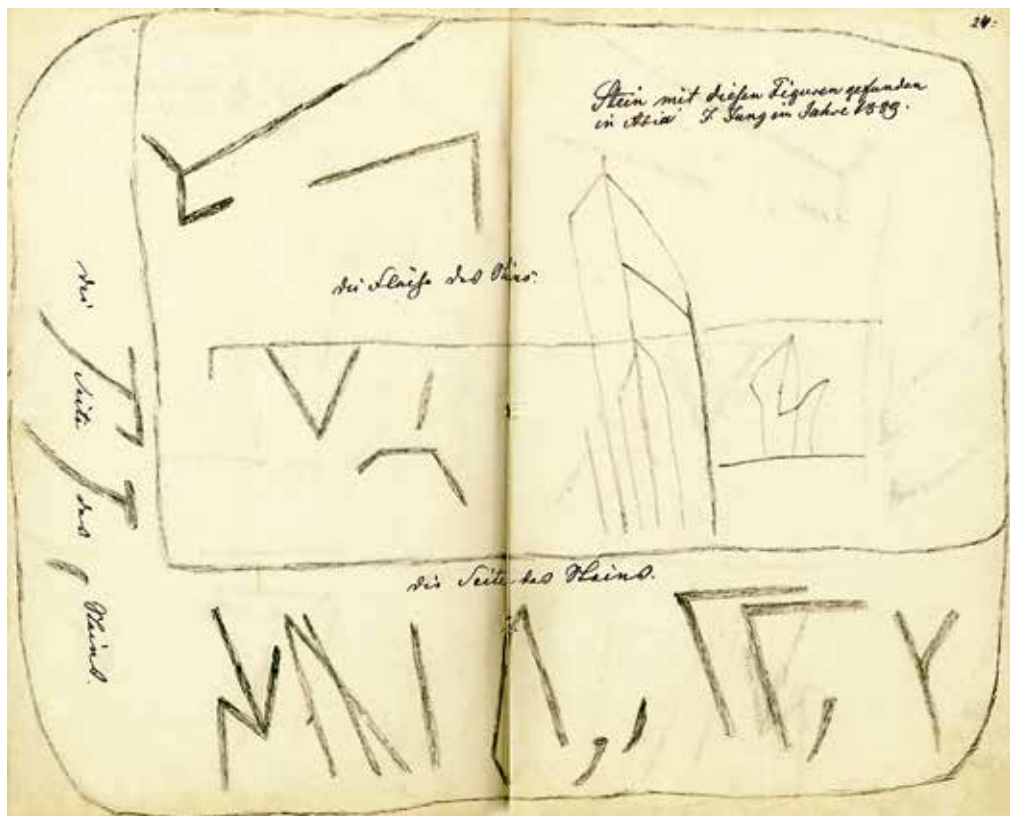 24.
Stein mit diesen Figuren gefunden
in Abia J. Jung im Jahre
die Fläche des Steins.
die Seite des Steins.
die Seite des Steins.